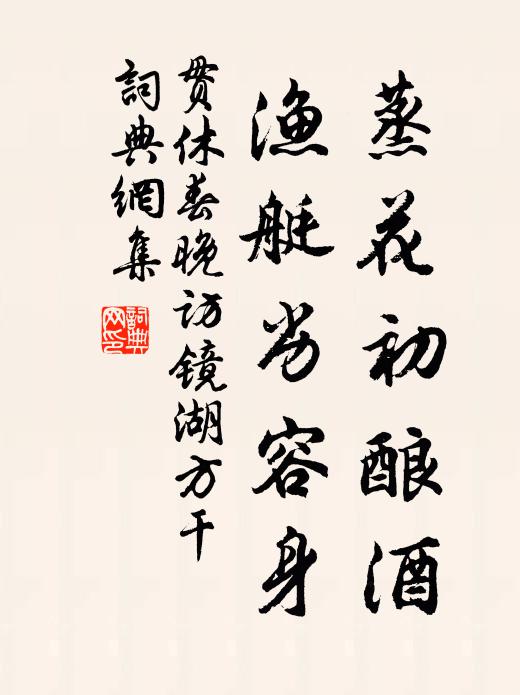 蒸花初酿酒
渔艇劣容身
贯休春晚访镜湖方干
词典網集
詞典网印